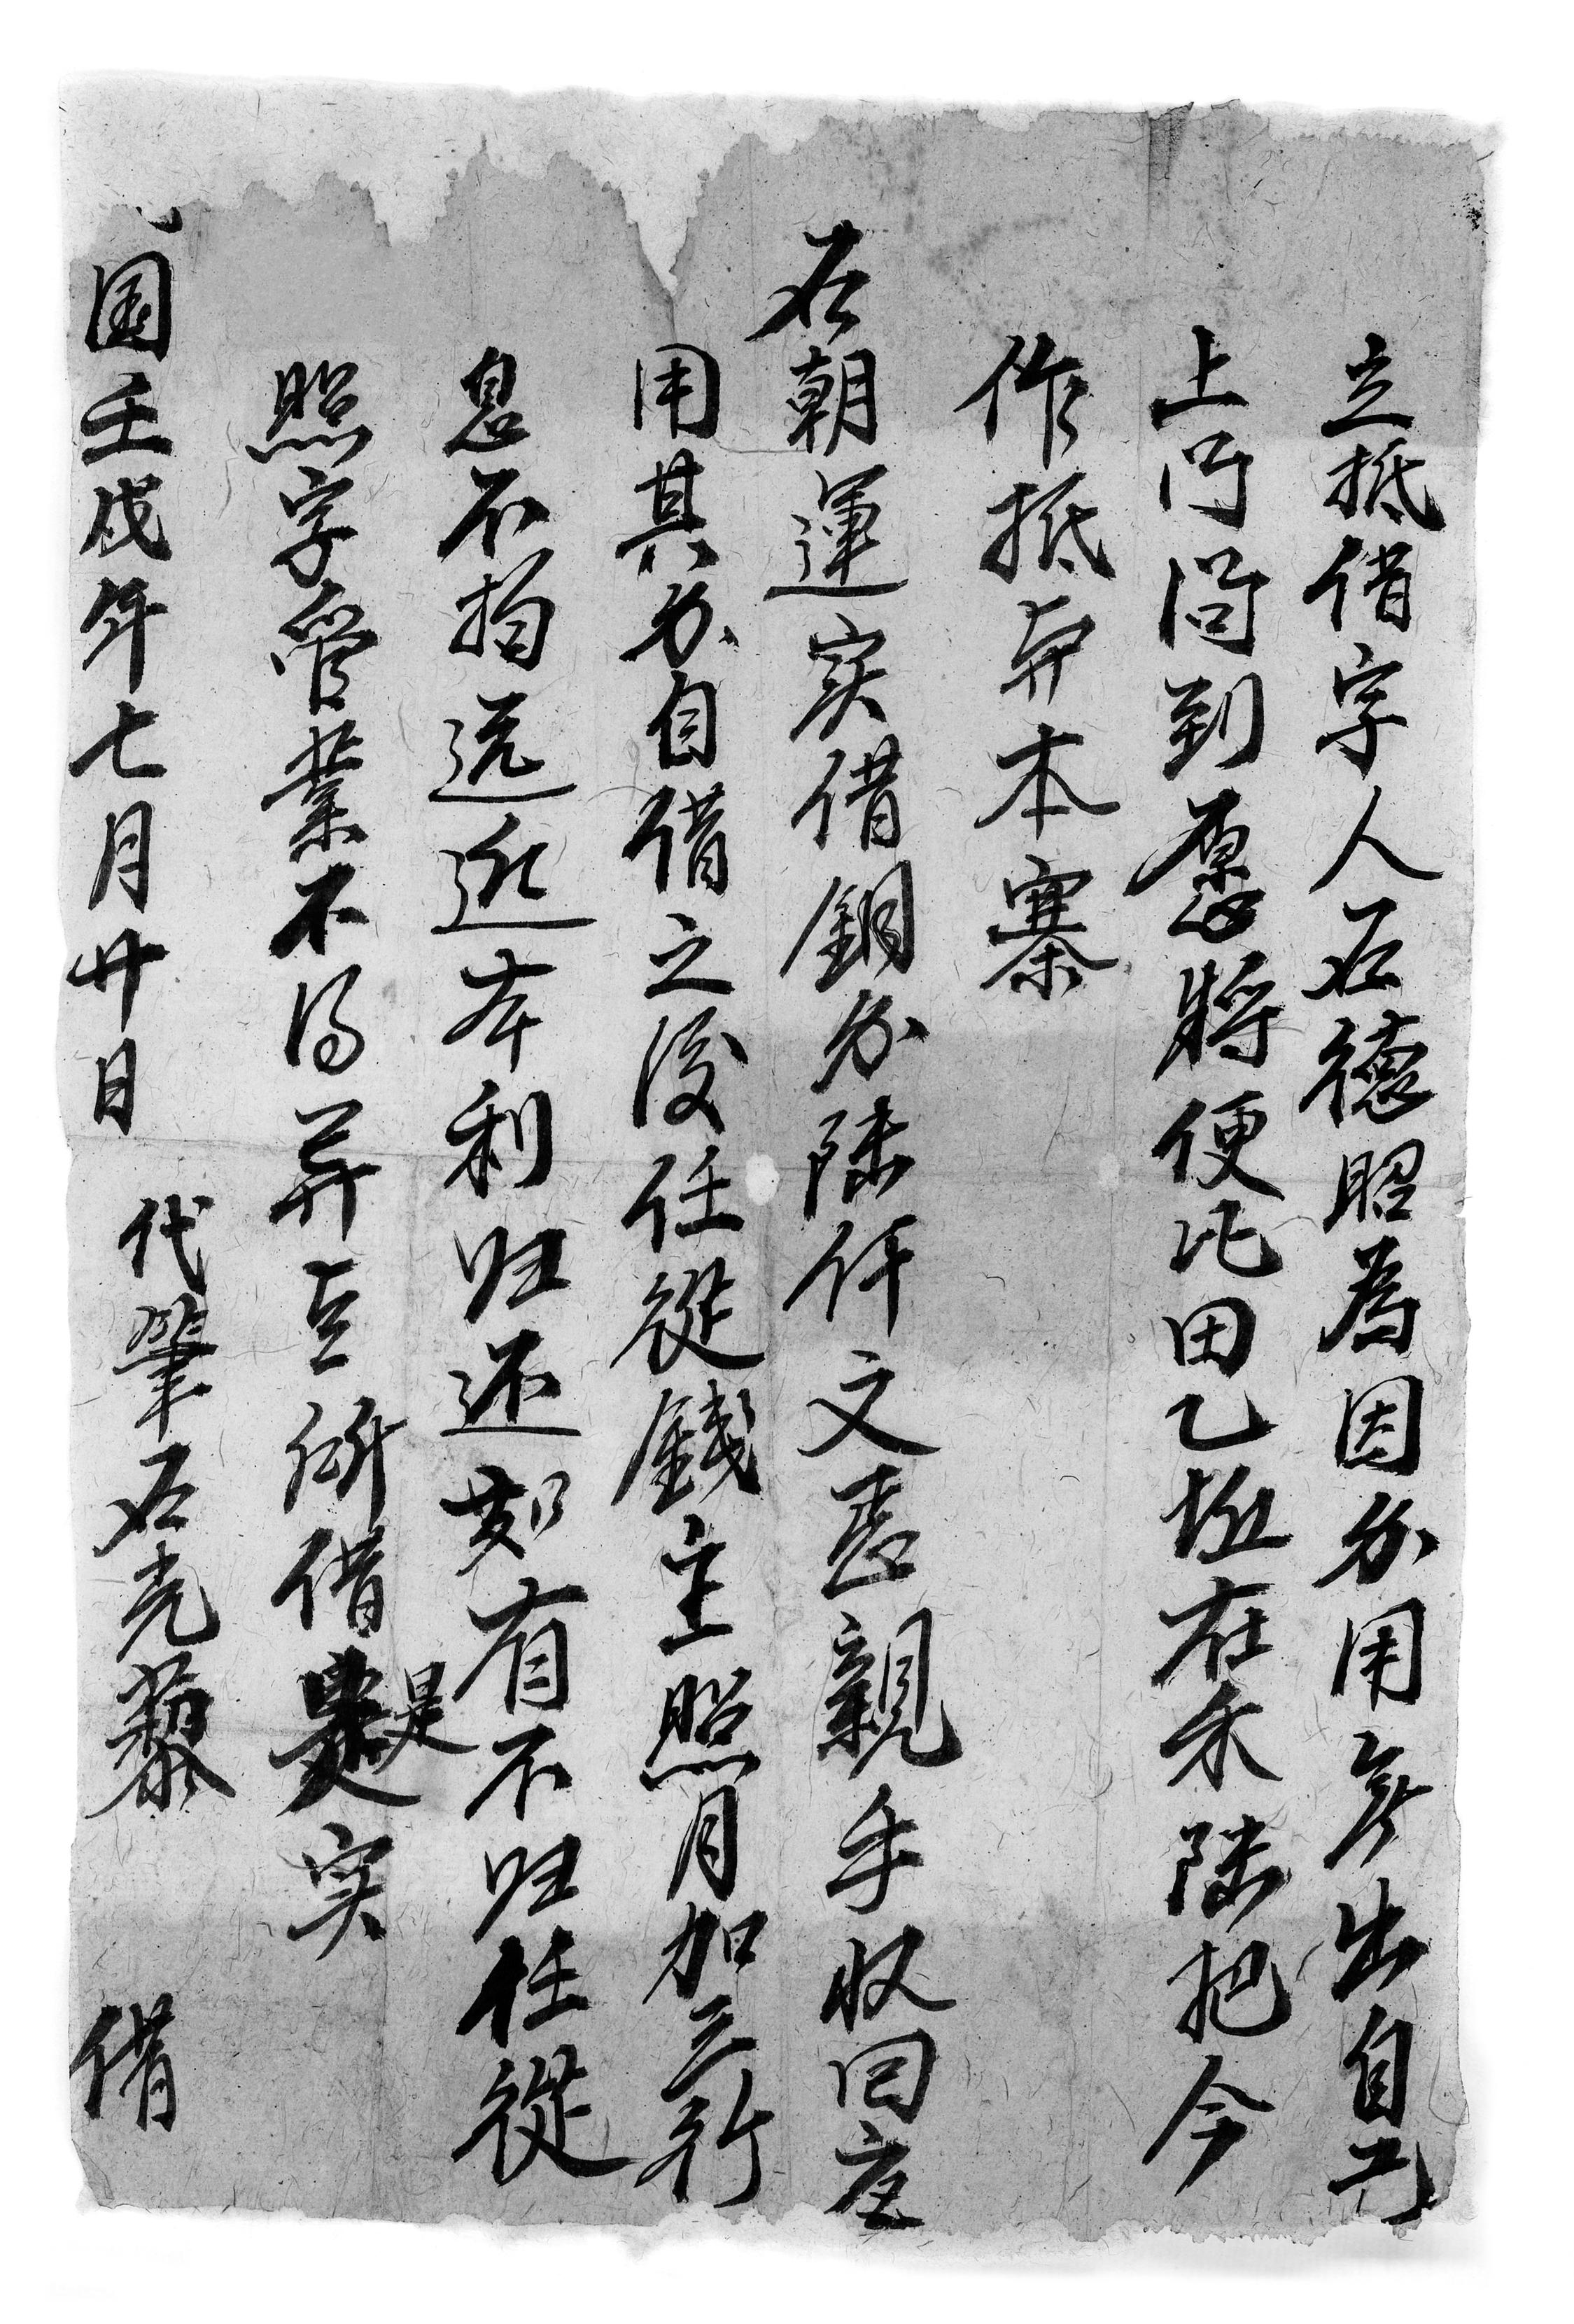 立抵借字人石德昭為因分用無出自己
上门问到愿將便屯田乙坵在禾陆把今
作抵與本寨
石朝運实借銅分陆仟文恚親手收回应
用其分自借之後任從錢主照月加三行
息不拘远近本利归还如有不归任從
照字管業不得异言所借是实
国壬戌年七月廿日 代筆石光藜 借